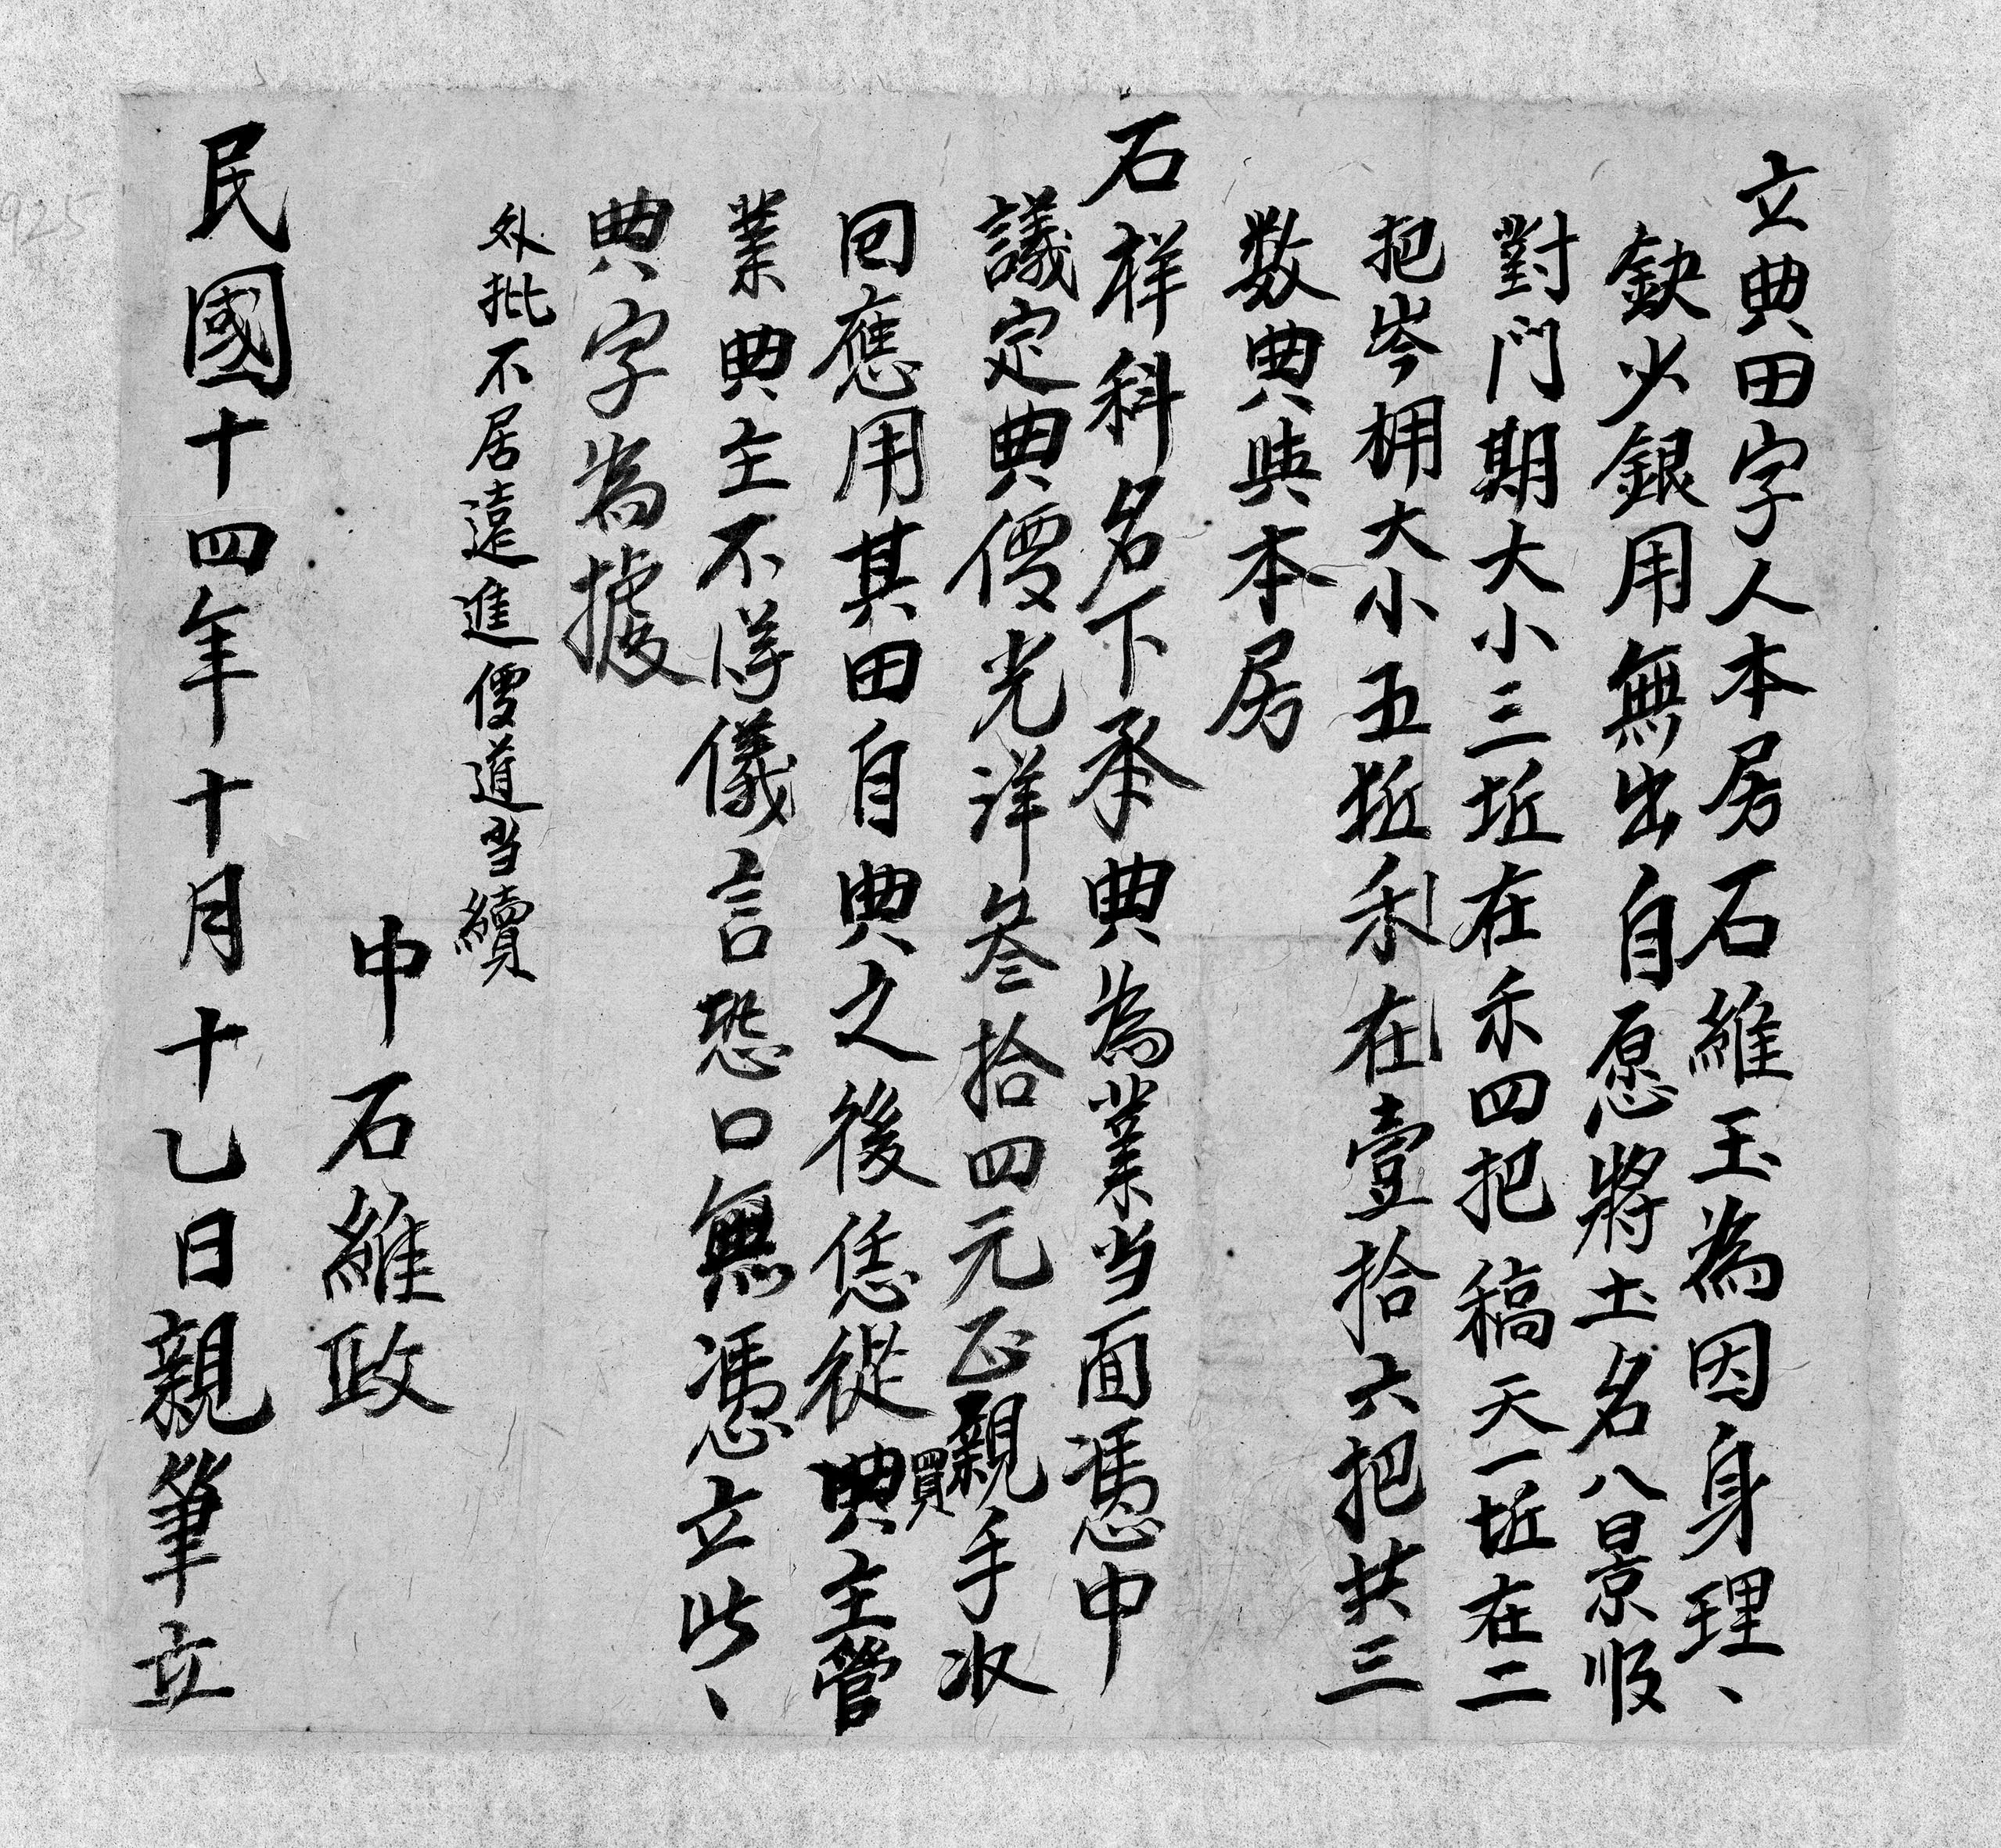 立典田字人本房石維玉為因身理、
缺少銀用無出自愿將土名八景㫠
對門期大小三坵在禾四把稿天一坵在二
把岑棚大小五坵禾在壹拾六把共三
数典與本房
石样科名下承典為業当面憑中
議定典價光洋叁拾四元正親手收
回應用其田自典之後恁從買典主管
業典主不得儀言恐口無憑立此、
典字為據
外批不居遠進價道当續
中石維政
民國十四年十月十乙日親筆立
925